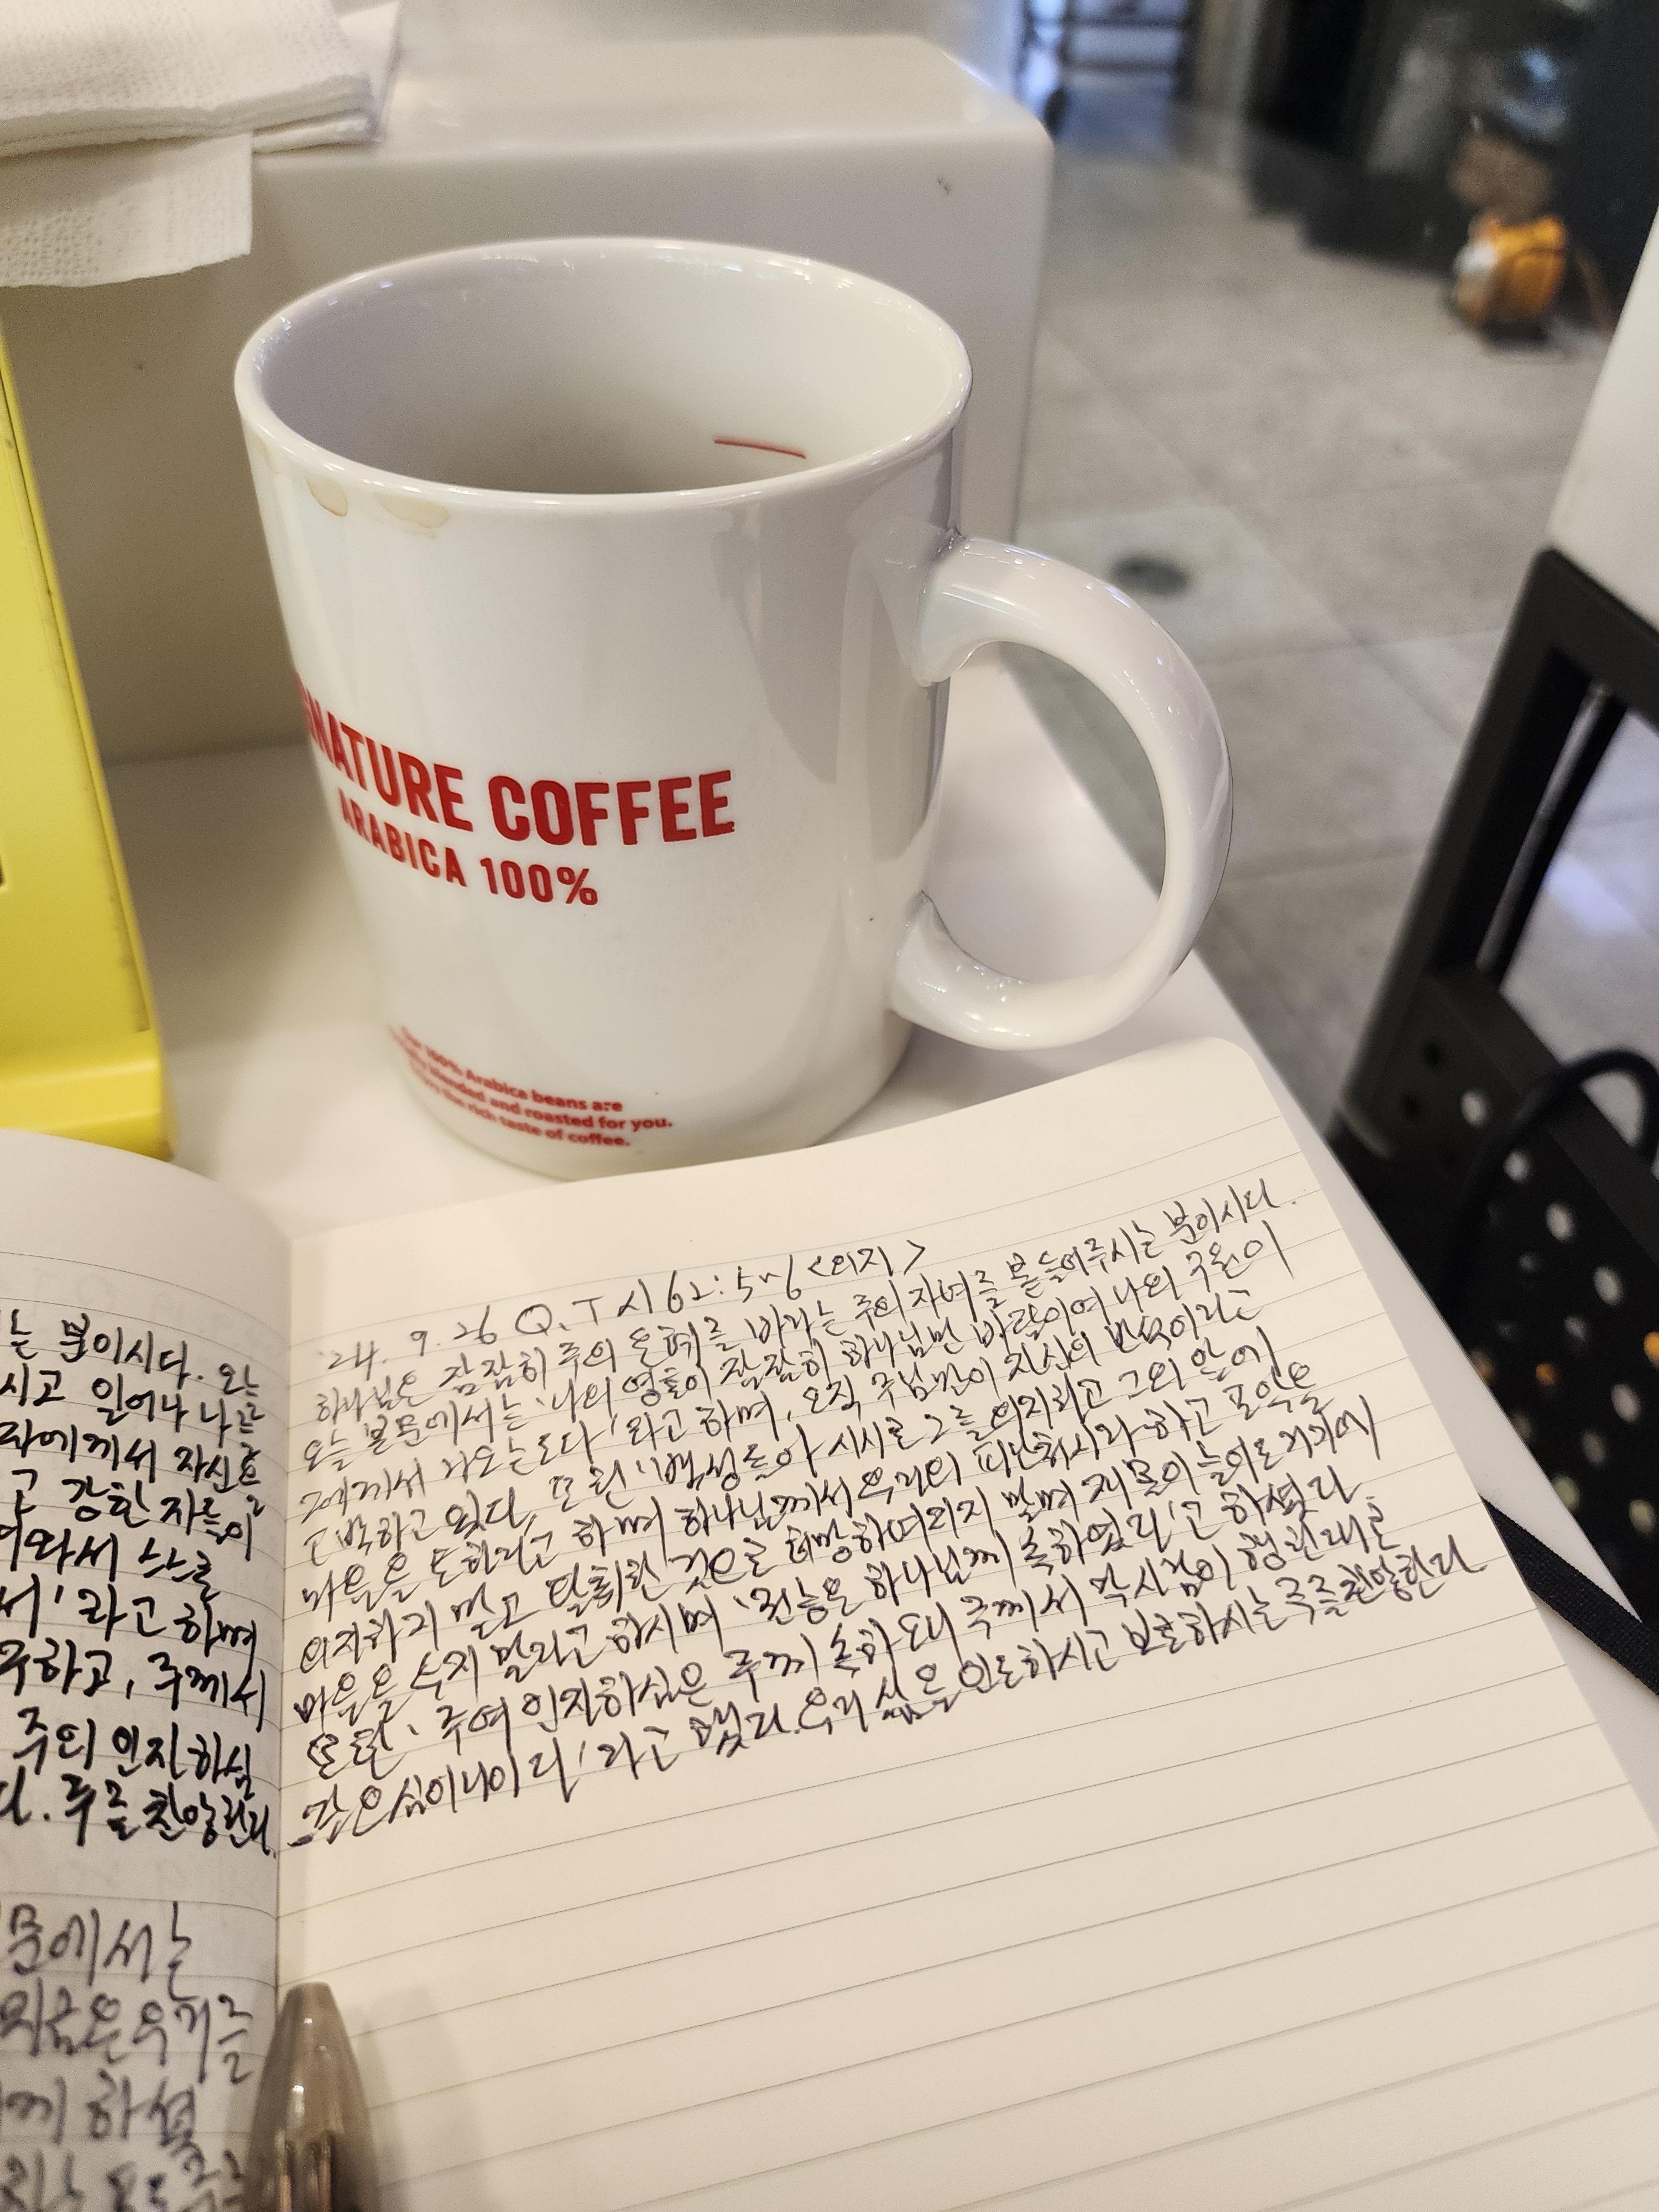 NATURE COFFEE
ARABICA 100%
100% Arabica beans are
blended and roasted for you.
the rich taste of coffee.
는 분이시다. 오늘
시고 일어나 나를
자에게서 자신을
고 강한 자들이
와서 스스로
서'라고 하며
구하고, 주께서
주의 인자하심
다. 주를 찬양한다.
문에서는
우리를
께 하셨
'24. 9. 26 Q.T 시 62:5~6 <의지>
하나님은 잠잠히 주의 은혜를 바라는 주의 자녀를 붙들어주시는 분이시다.
오늘 본문에서는 '나의 영혼이 잠잠히 하나님만 바람이여 나의 구원이
그에게서 나오는도다'라고 하며, 오직 주님만이 자신의 반석이라고
고백하고 있다. 또한 '백성들아 시시로 그를 의지하고 그의 앞에
마음을 토하라고 하며 하나님께서 우리의 피난처시라 하고 포악을
의지하지 말고 탈취한 것으로 허망하여지지 말며 재물이 늘어도 거기에
마음을 두지 말라고 하시며 '권능은 하나님께 속하였다'고 하셨다.
또한, 주여 인자하심은 주께 속하오니 주께서 각 사람이 행한대로
갚으심이니이다'라고 했다. 우리 삶을 인도하시고 보호하시는 주를 찬양한다